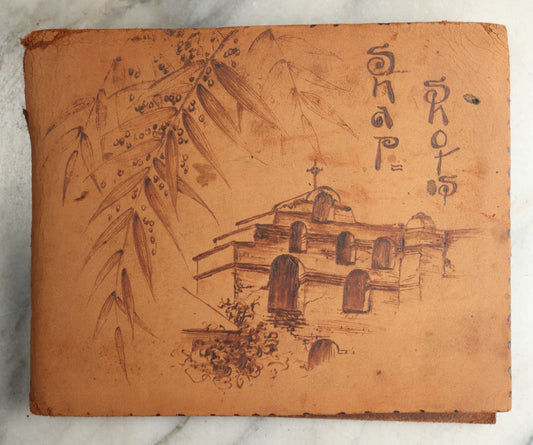 Snap=
Shots